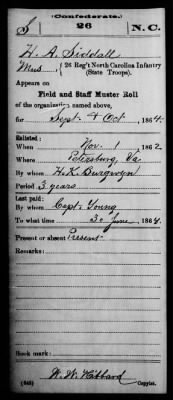 (Confederate.)
S 26 N.C.
H. A. Siddall
Mus, 26 Reg't North Carolina Infantry
(State Troops).
Appears on
Field and Staff Muster Roll
of the organization named above,
for Sept & Oct, 1864.
Enlisted:
When Nov. 1 1862
Where Petersburg, Va
By whom H. K. Burgwyn
Period 3 years
Last paid:
By whom Capt. Young
To what time 30 June, 1864.
Present or absent Present
Remarks:
Book mark:
W. W. Hibbard
Copyist.